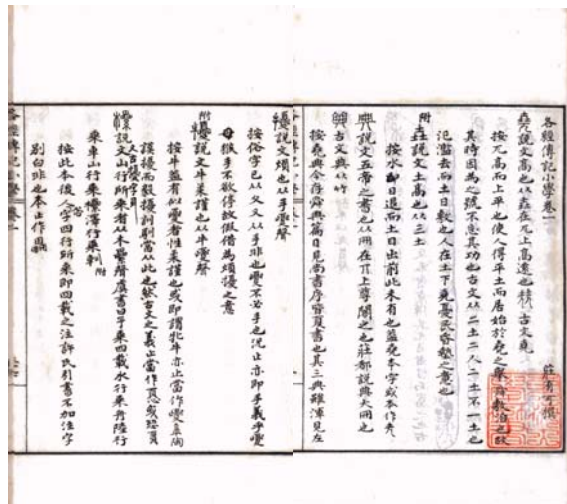 各經傳記小學卷一
莊有可撰
堯說文高也从垚在兀上高遠也 古文堯
按兀高而上平也使人得平土而居始於堯之 故
其時因為之號不忘其功也古文从二土二人二土不一土也
氾濫去而土日 也人在土下 憂民昏墊之意也
附垚說文土高也从三土
按水日退而土日出前此未有也蓋堯本字或本作
典說文五帝之書也从冊在丌上尊閣之也莊都說典大冊也
古文典从竹
按堯典今存舜典篇目見尚書序 夏書也其三典雜渾見左
擾說文煩也从手夒聲
按俗字已从 又从手非也夒不必手也況止亦即手義乎夒
母猴手不欲停故假借為煩擾之意
附 說文牛柔謹也从牛夒聲
按牛蓋有似夒者性柔謹也或即謂牝牛亦止當作夒皋陶
謨擾而毅擾訓馴當从此也然古文之義止當作
說文山行所乘者从木 聲虞書曰予乘四載水行乘舟陸行
乘車山行乘欙澤行乘
按此本後人 字四行所乘即四載之注許氏引書不加注字
別白非也本止作